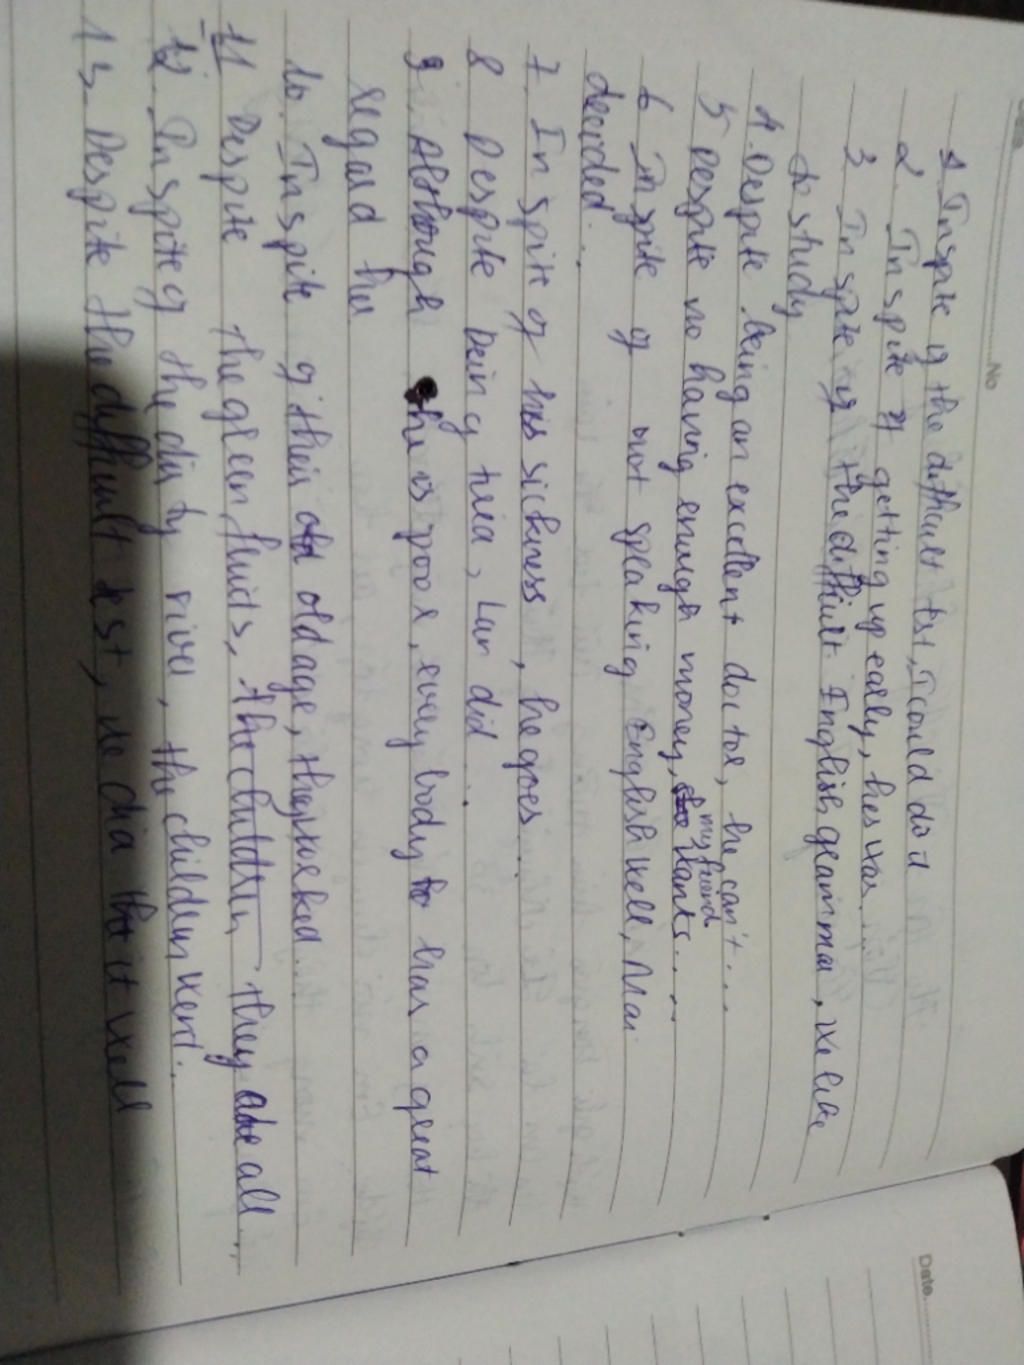 No
1 Inspite of the difficult test, I could do it
2. In spite of getting up early, he was
3 In spite of the difficult English grammar, we like
to study
4. Despite being an excellent doctor, he can't....
my friend
5 Despite no having enough money, wants....
6 In spite of not speaking English well, Mai
decided...
7. In spite of his sickness, he goes...
8 Despite being tired, Lan did...
9. Although he is poor, every body has a great
regard
10. In spite of their old age, they worked...
11 Despite the green fruits, the children they are all...
12. In spite of the dirty river, the children went..
13. Despite the difficult test, it well
Date